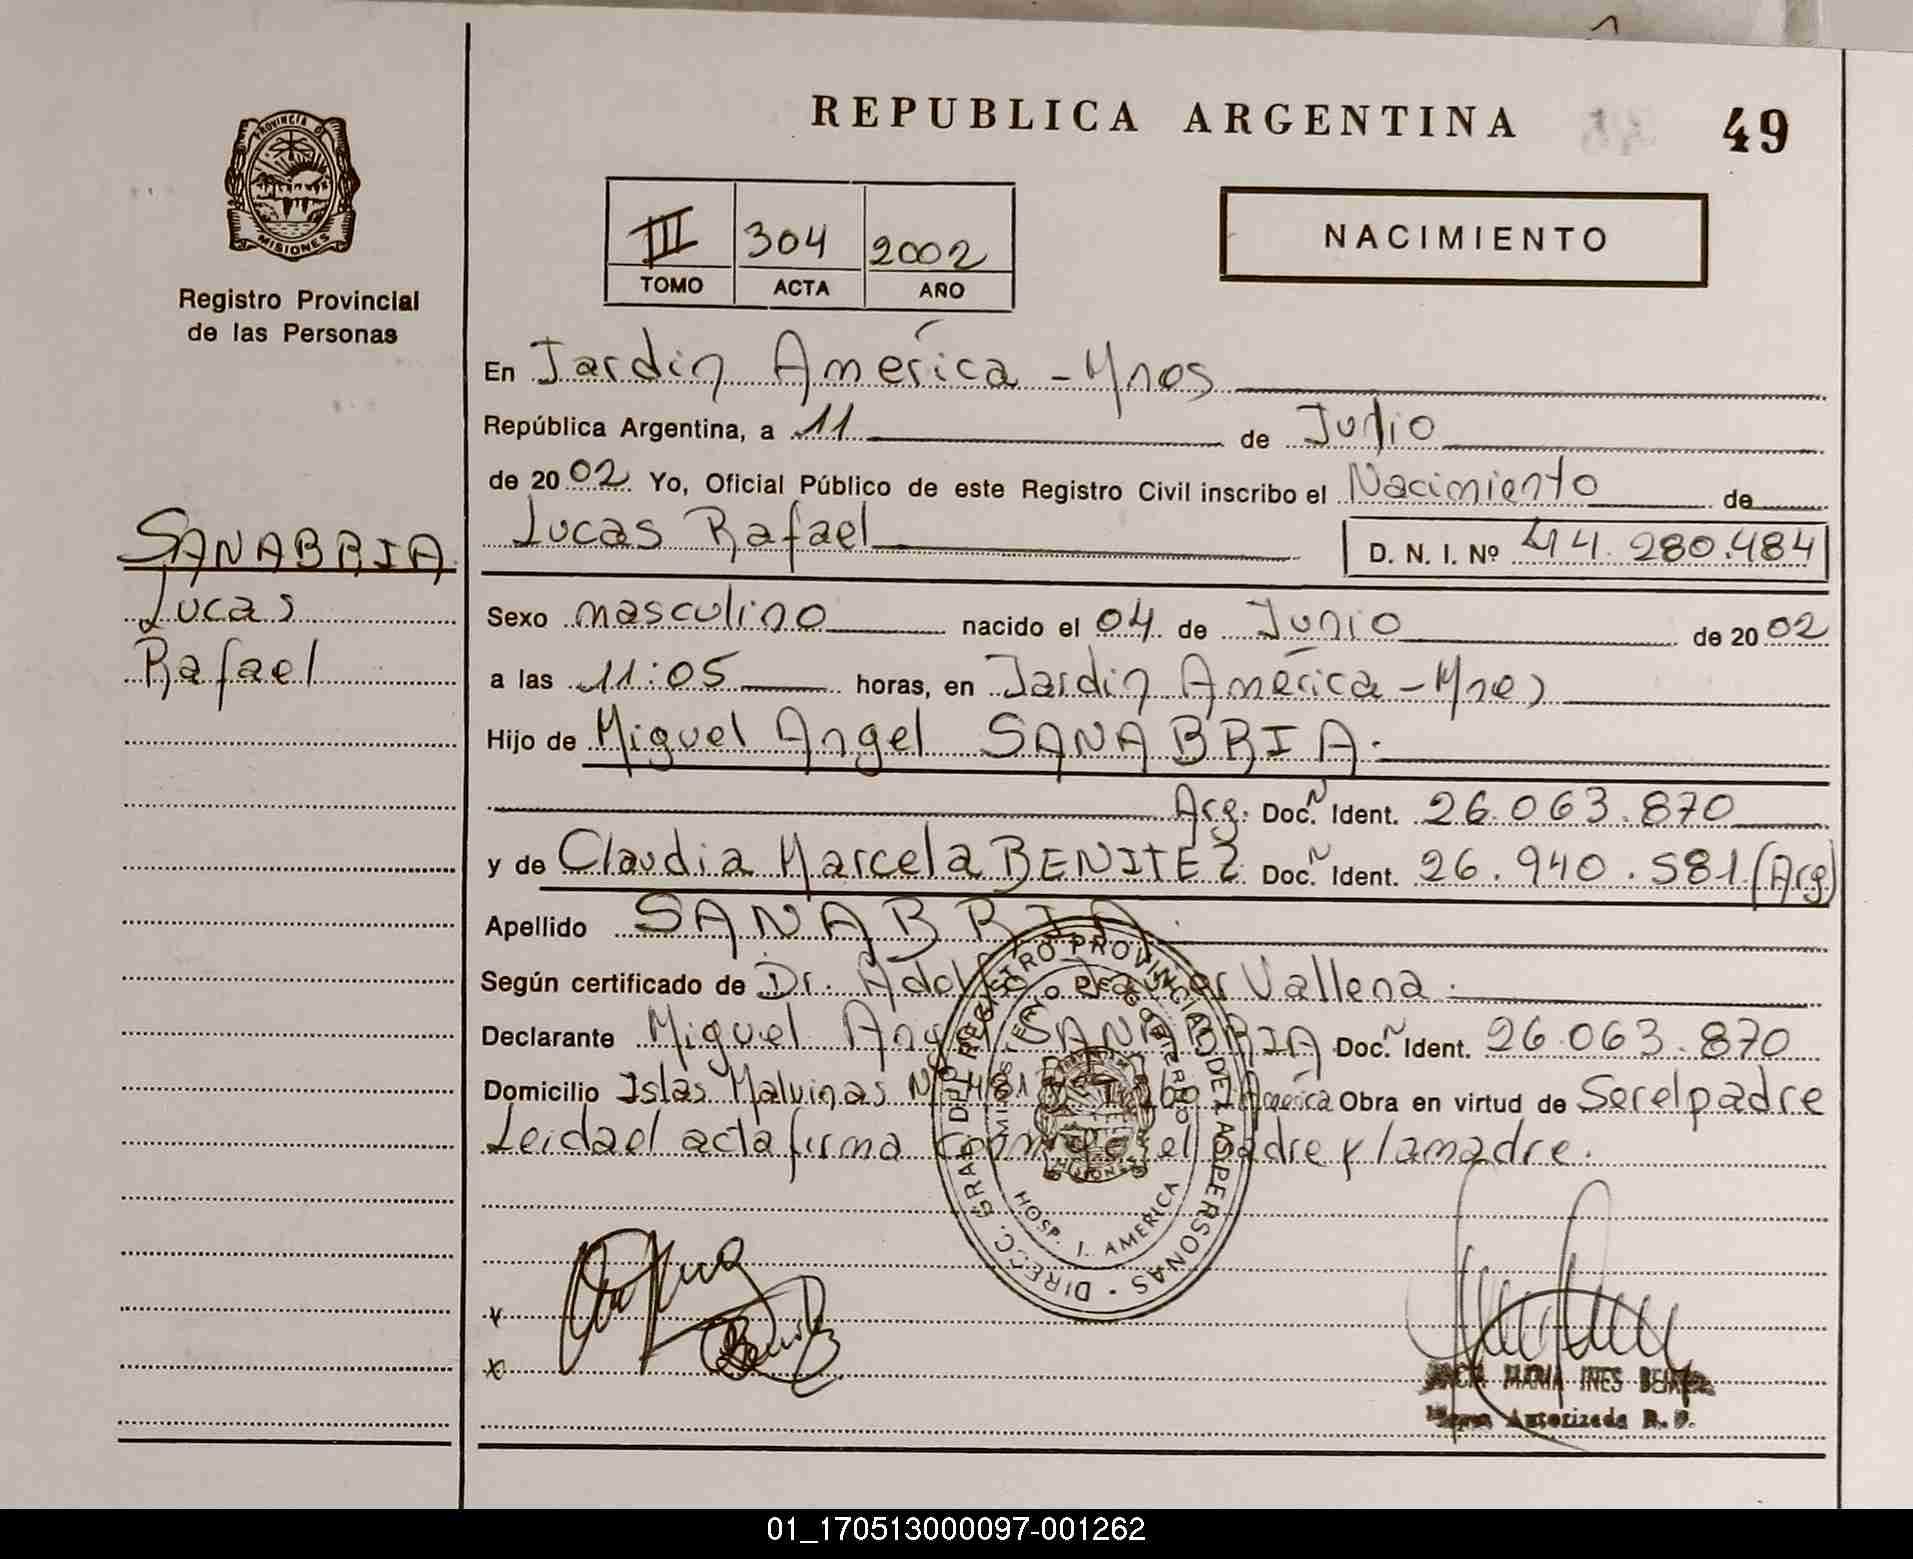 REPUBLICA ARGENTINA
49
PROVINCIA D
MISIONES
Registro Provincial
de las Personas
III 304 2002
TOMO ACTA AÑO
NACIMIENTO
En Jardín América - Mnes
República Argentina, a 11 de Junio
de 2002 Yo, Oficial Público de este Registro Civil inscribo el Nacimiento de
Lucas Rafael D. N. I. Nº 44.280.484
SANABRIA
Lucas
Rafael
Sexo masculino nacido el 04 de Junio de 2002
a las 11:05 horas, en Jardín América - Mnes
Hijo de Miguel Angel SANABRIA.
Arg. Doc. Ident. 26.063.870
y de Claudia Marcela BENITEZ Doc. Ident. 26.940.581 (Arg)
Apellido SANABRIA.
Según certificado de Dr. Adolfo Vallena.
Declarante Miguel Angel SANABRIA Doc. Ident. 26.063.870
Domicilio Islas Malvinas América Obra en virtud de Ser el padre
Leida el acta firma conmigo el padre y la madre.
DIRECC. GRAL. DEL REGISTRO PROVINCIAL DE LAS PERSONAS
HOSP. J. AMERICA
MARIA INES
Autorizada R. P.
01_170513000097-001262